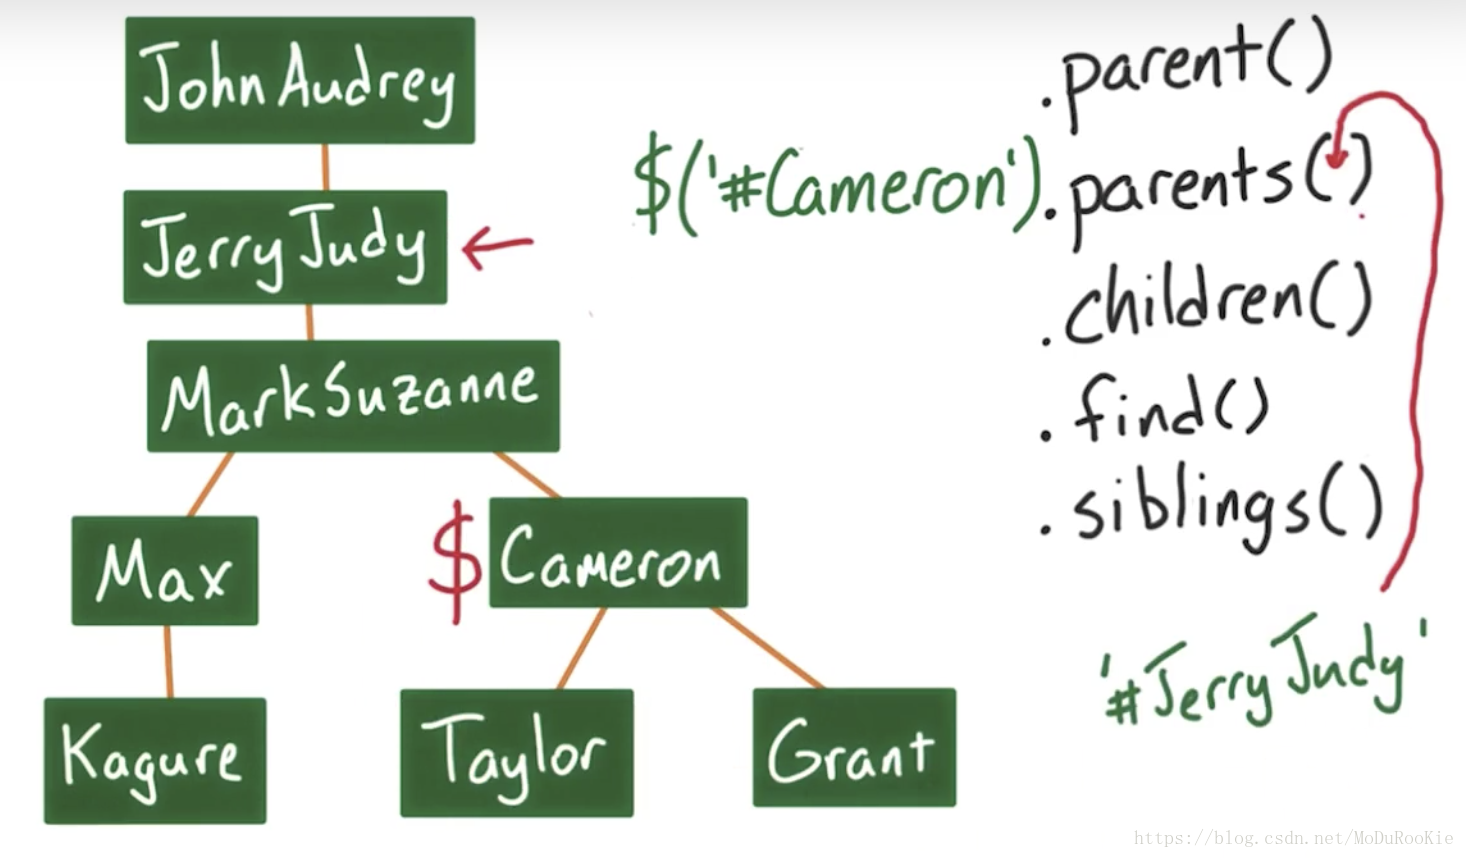 John Audrey
Jerry Judy
Mark Suzanne
Max
$ Cameron
Kagure
Taylor
Grant
.parent()
$('#Cameron').parents()
.children()
.find()
.siblings()
'#JerryJudy'
https://blog.csdn.net/MoDuRooKie